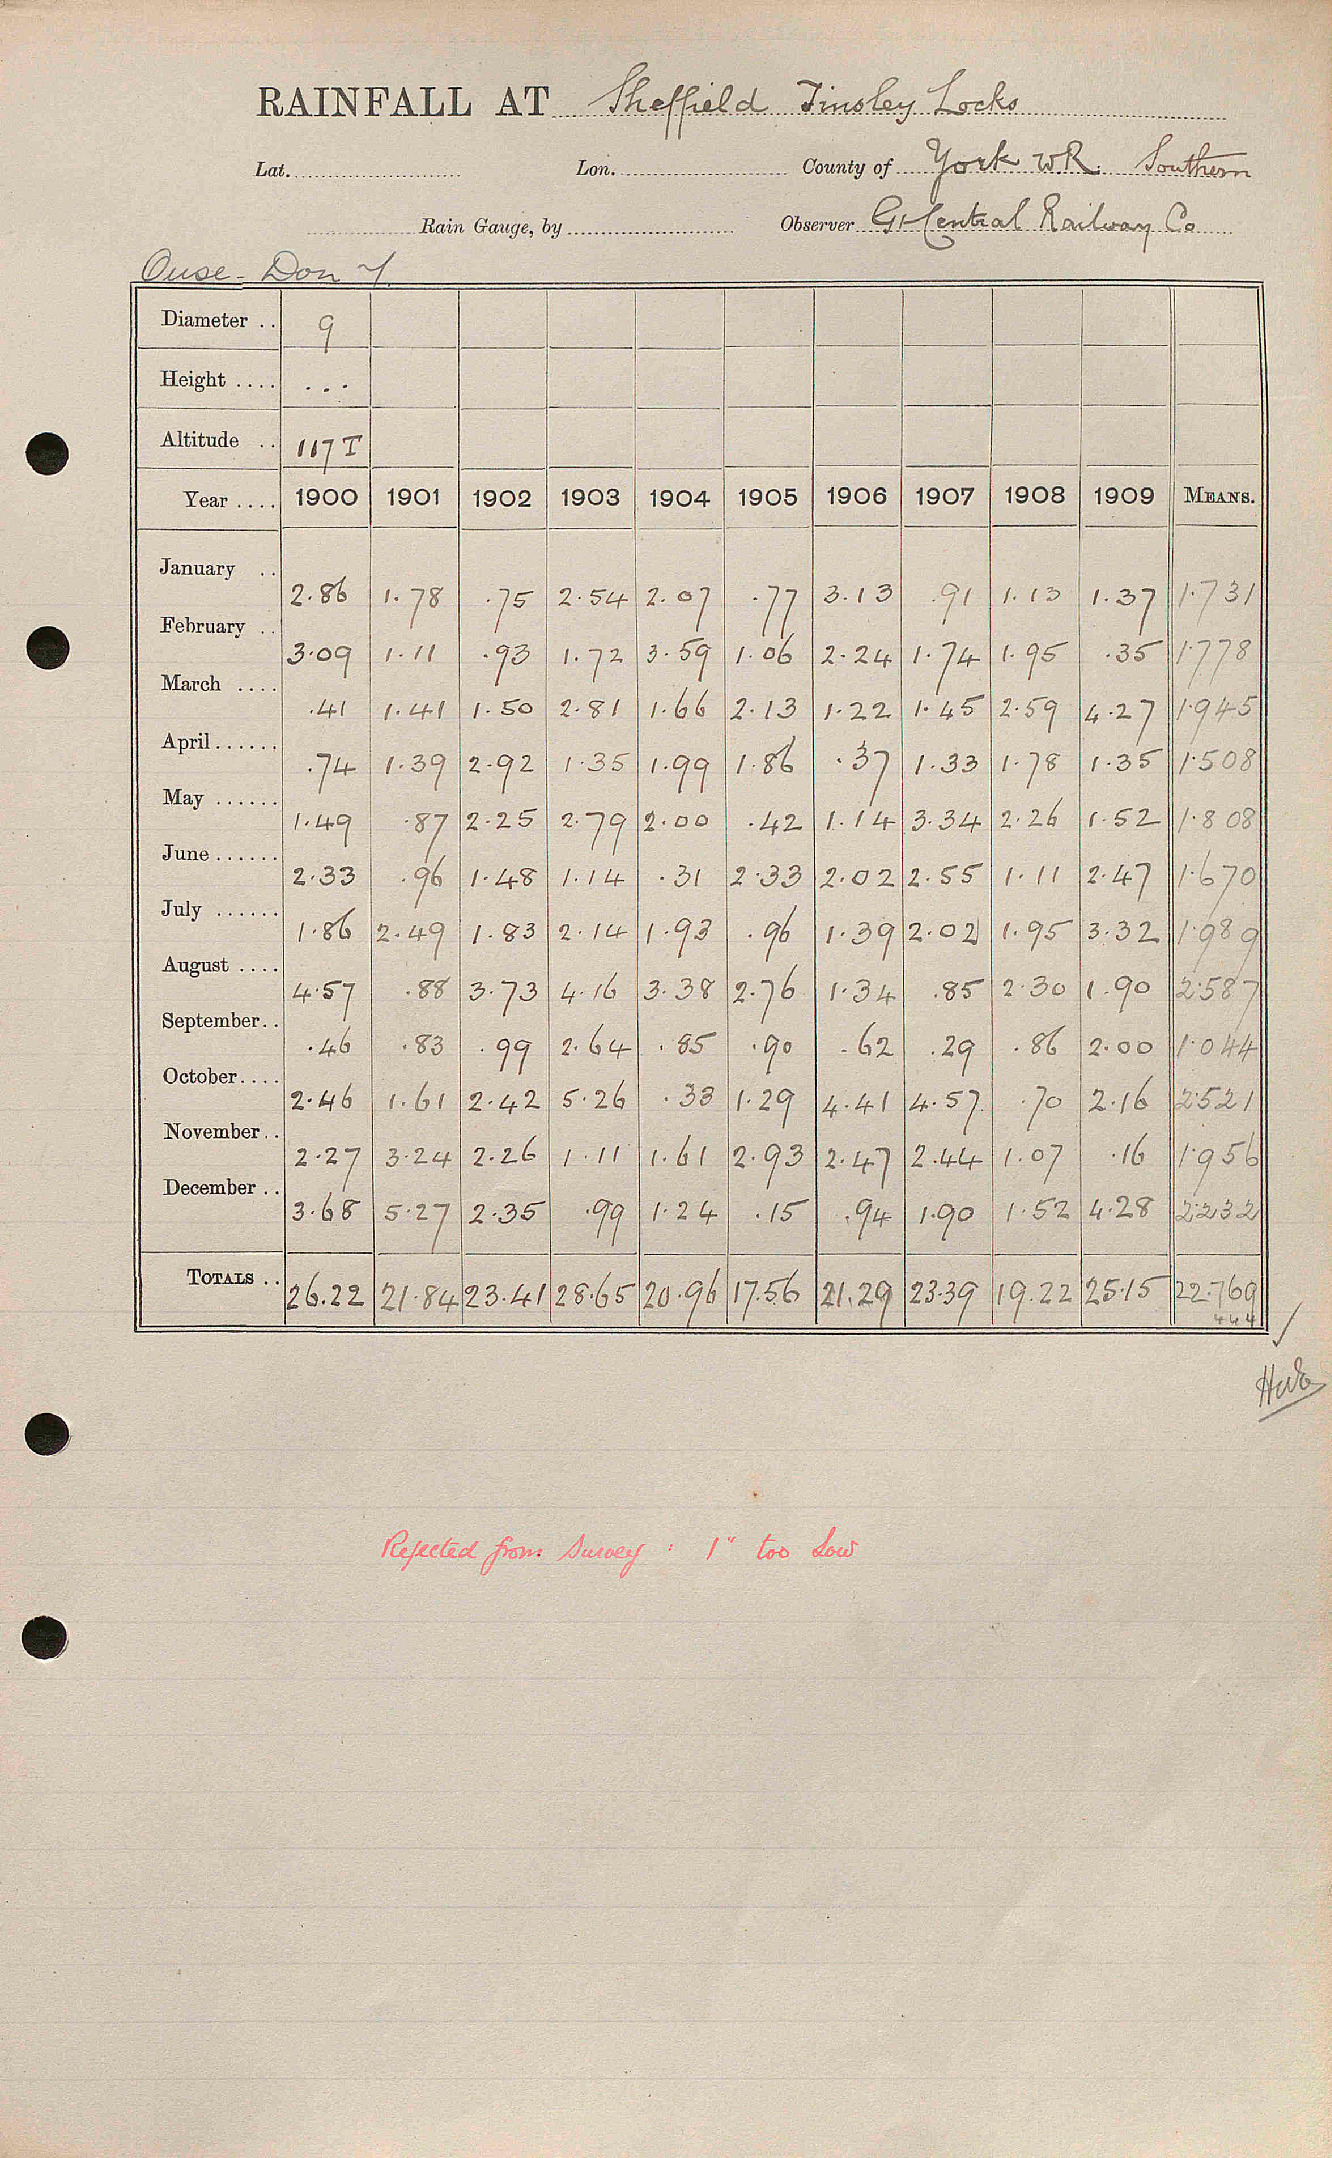 RAINFALL AT Sheffield Tinsley Locks
Lat. Lon. County of York W.R. Southern
Rain Gauge, by Observer Gt Central Railway Co
Ouse - Don Y
Diameter .. 9
Height .... ...
Altitude .. 117 T
Year .... 1900 1901 1902 1903 1904 1905 1906 1907 1908 1909 MEANS.
January .. 2.86 1.78 .75 2.54 2.07 .77 3.13 .91 1.13 1.37 1.731
February .. 3.09 1.11 .93 1.72 3.59 1.06 2.24 1.74 1.95 .35 1.778
March .... .41 1.41 1.50 2.81 1.66 2.13 1.22 1.45 2.59 4.27 1.945
April...... .74 1.39 2.92 1.35 1.99 1.86 .37 1.33 1.78 1.35 1.508
May ...... 1.49 .87 2.25 2.79 2.00 .42 1.14 3.34 2.26 1.52 1.808
June...... 2.33 .96 1.48 1.14 .31 2.33 2.02 2.55 1.11 2.47 1.670
July ...... 1.86 2.49 1.83 2.14 1.93 .96 1.39 2.02 1.95 3.32 1.989
August .... 4.57 .88 3.73 4.16 3.38 2.76 1.34 .85 2.30 1.90 2.587
September.. .46 .83 .99 2.64 .85 .90 .62 .29 .86 2.00 1.044
October.... 2.46 1.61 2.42 5.26 .33 1.29 4.41 4.57 .70 2.16 2.521
November.. 2.27 3.24 2.26 1.11 1.61 2.93 2.47 2.44 1.07 .16 1.956
December .. 3.68 5.27 2.35 .99 1.24 .15 .94 1.90 1.52 4.28 2.232
TOTALS .. 26.22 21.84 23.41 28.65 20.96 17.56 21.29 23.39 19.22 25.15 22.769
444
Rejected from Survey : 1" too Low